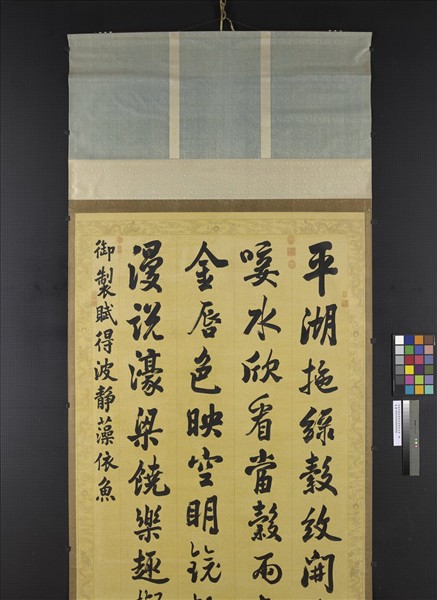 平湖拖綠縠紋開
唼水欣看當穀雨
金唇色映空明鏡
漫說濠梁饒樂趣
御製賦得波靜藻依魚